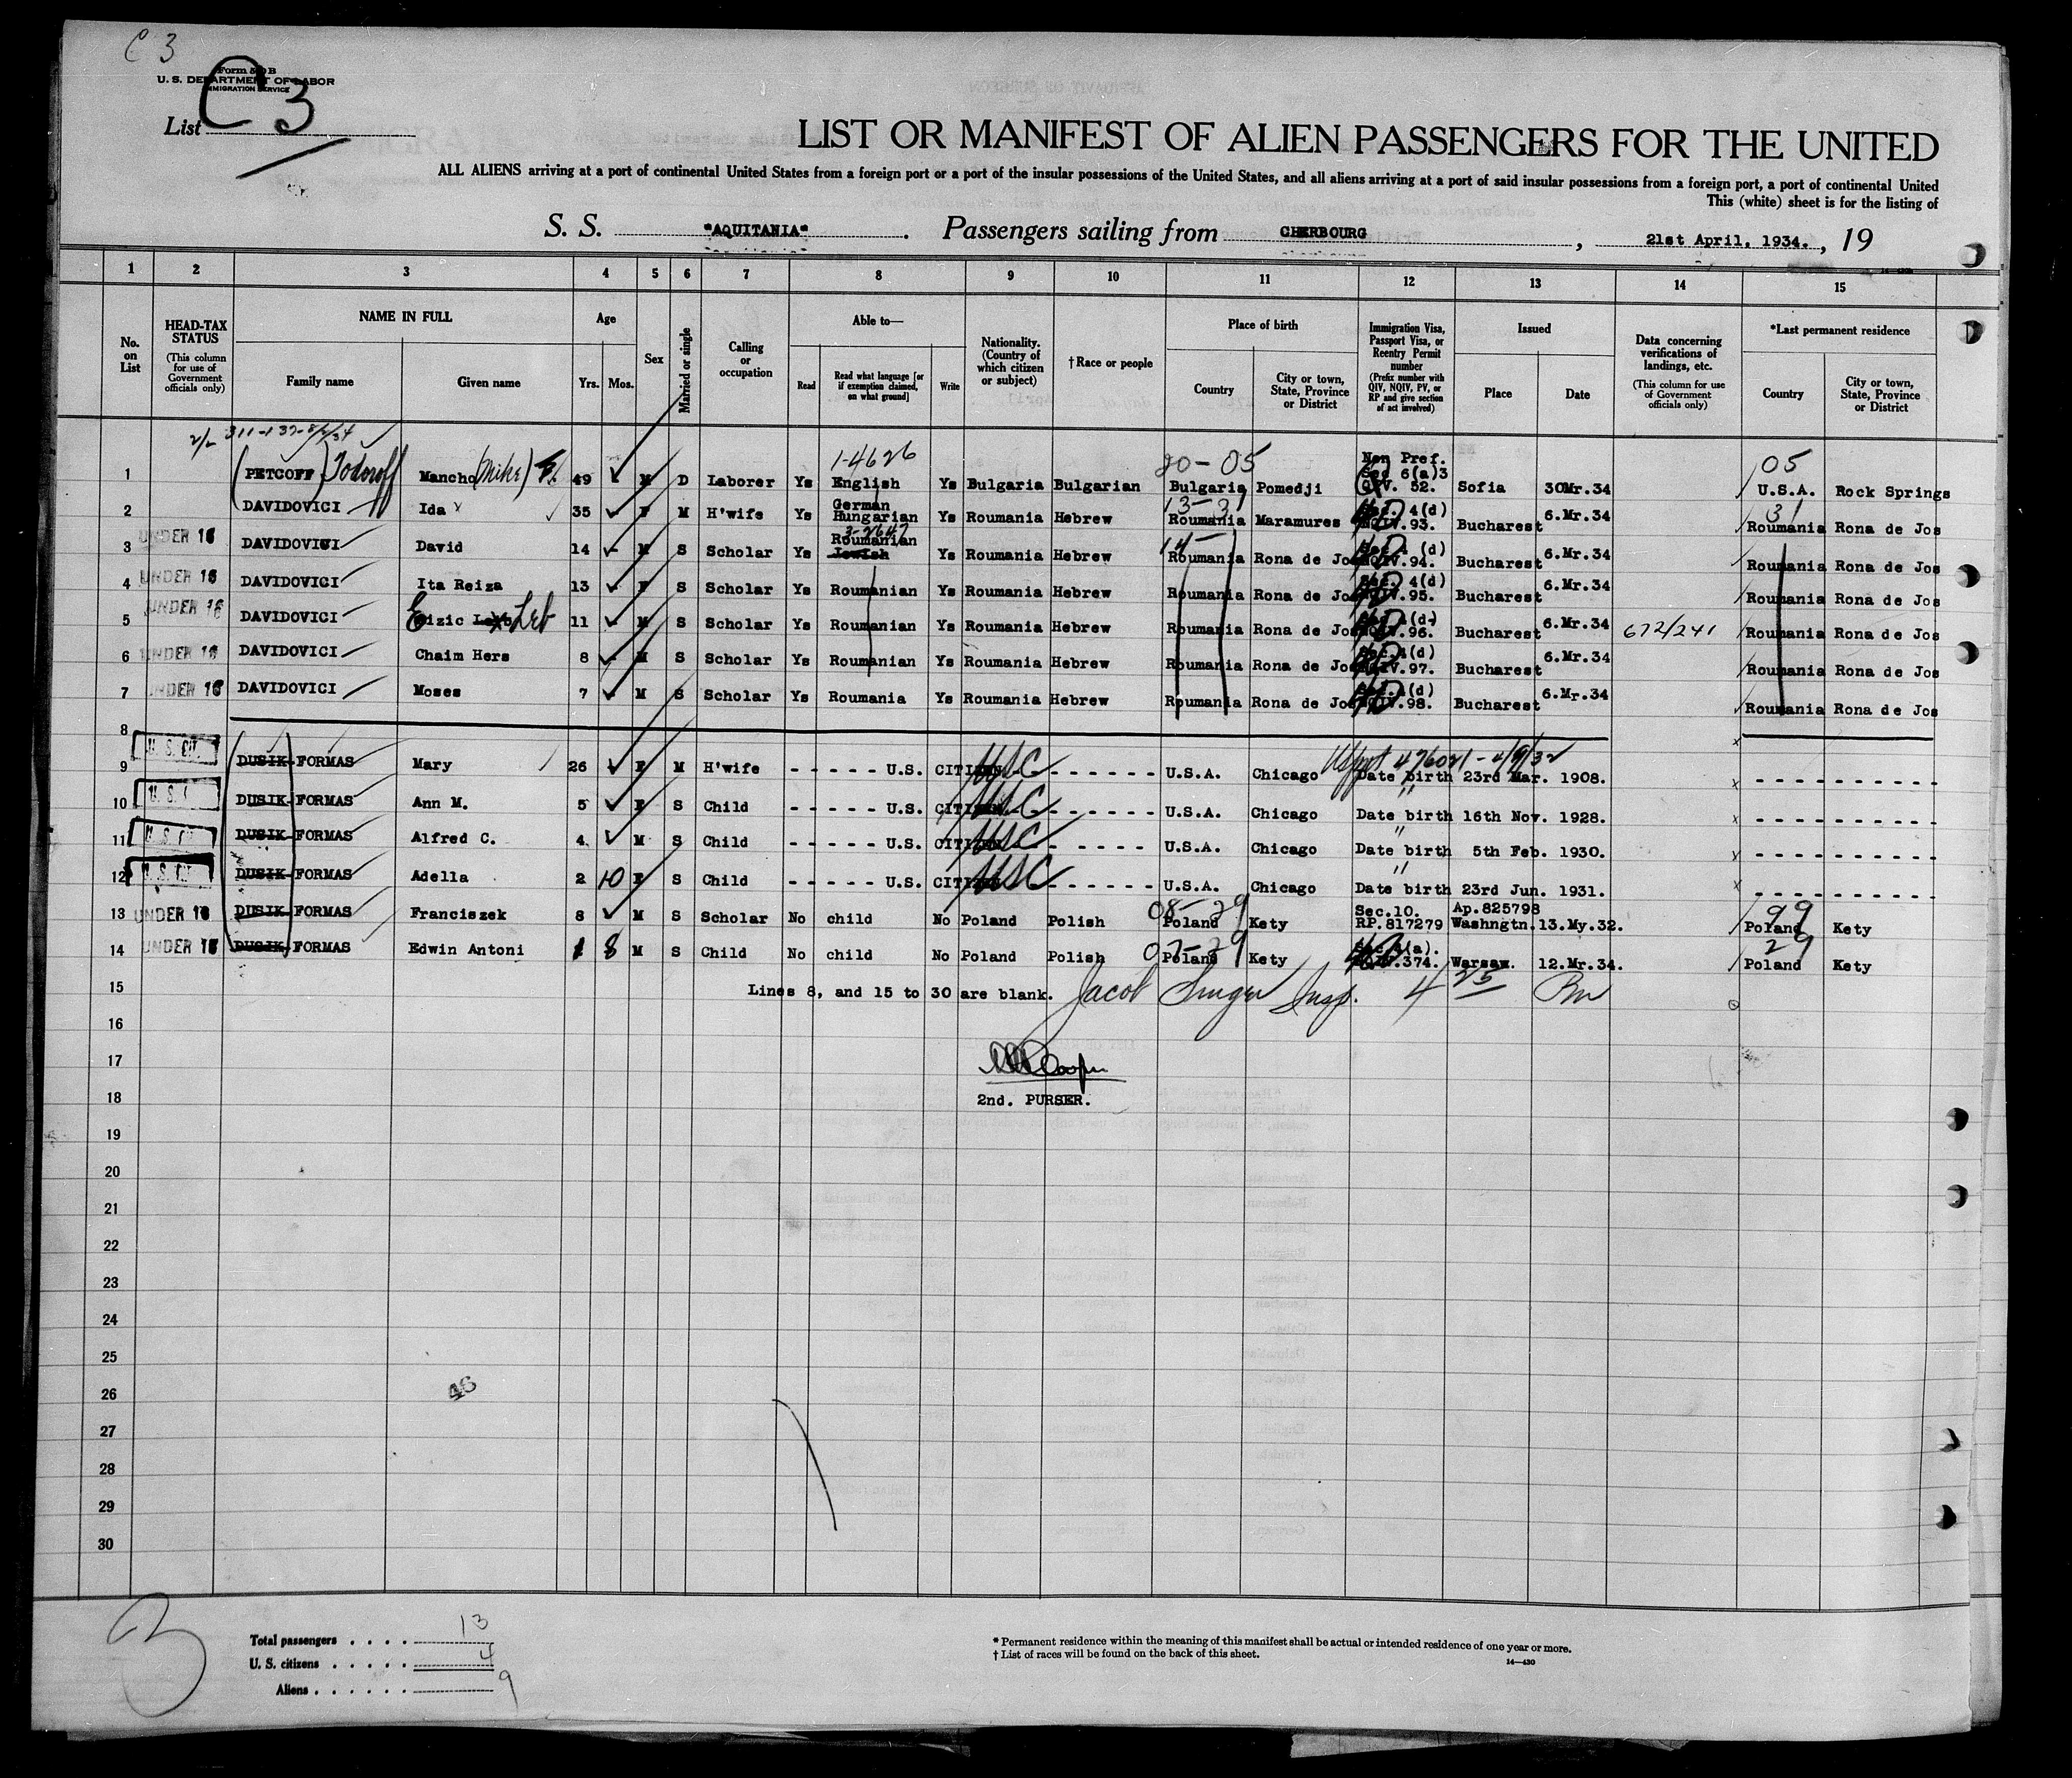 C 3
Form 500 B
U. S. DEPARTMENT OF LABOR
IMMIGRATION SERVICE
List C 3
LIST OR MANIFEST OF ALIEN PASSENGERS FOR THE UNITED
ALL ALIENS arriving at a port of continental United States from a foreign port or a port of the insular possessions of the United States, and all aliens arriving at a port of said insular possessions from a foreign port, a port of continental United
This (white) sheet is for the listing of
S. S. "AQUITANIA". Passengers sailing from CHERBOURG, 21st April, 1934., 19
1 2 3 4 5 6 7 8 9 10 11 12 13 14 15
No. on List
HEAD-TAX STATUS (This column for use of Government officials only)
NAME IN FULL Family name Given name
Age Yrs. Mos.
Sex
Married or single
Calling or occupation
Able to— Read Read what language [or if exemption claimed, on what ground] Write
Nationality. (Country of which citizen or subject)
† Race or people
Place of birth Country City or town, State, Province or District
Immigration Visa, Passport Visa, or Reentry Permit number (Prefix number with QIV, NQIV, PV, or RP and give section of act involved)
Issued Place Date
Data concerning verifications of landings, etc. (This column for use of Government officials only)
*Last permanent residence Country City or town, State, Province or District
1-4626 20-05 Non Pref. 05
1 (PETCOFF) Todoroff Mancho (Mike) 49 M D Laborer Ys English Ys Bulgaria Bulgarian Bulgaria Pomedji Sec 6(a)3 QIV. 52. Sofia 30Mr.34 U.S.A. Rock Springs
2 DAVIDOVICI Ida 35 F M H'wife Ys German Hungarian Ys Roumania Hebrew 13-31 Roumania Maramures 4(d) 93. Bucharest 6.Mr.34 31 Roumania Rona de Jos
3 UNDER 16 DAVIDOVICI David 14 M S Scholar Ys Roumanian Jewish Ys Roumania Hebrew 14- Roumania Rona de Jos (d) 94. Bucharest 6.Mr.34 Roumania Rona de Jos
4 UNDER 16 DAVIDOVICI Ita Reiza 13 F S Scholar Ys Roumanian Ys Roumania Hebrew Roumania Rona de Jos 4(d) 95. Bucharest 6.Mr.34 Roumania Rona de Jos
5 UNDER 16 DAVIDOVICI Eizic Leb 11 M S Scholar Ys Roumanian Ys Roumania Hebrew Roumania Rona de Jos (d) 96. Bucharest 6.Mr.34 672/241 Roumania Rona de Jos
6 UNDER 16 DAVIDOVICI Chaim Hers 8 M S Scholar Ys Roumanian Ys Roumania Hebrew Roumania Rona de Jos (d) 97. Bucharest 6.Mr.34 Roumania Rona de Jos
7 UNDER 16 DAVIDOVICI Moses 7 M S Scholar Ys Roumania Ys Roumania Hebrew Roumania Rona de Jos (d) 98. Bucharest 6.Mr.34 Roumania Rona de Jos
8
9 U.S. CIT. DUSIK FORMAS Mary 26 F M H'wife - - - - - U.S. CITIZEN USC - - - - - - U.S.A. Chicago 476021 - 4/9/32 Date birth 23rd Mar. 1908.
10 U.S. DUSIK FORMAS Ann M. 5 F S Child - - - - - U.S. CITIZEN USC - - - - - - U.S.A. Chicago " Date birth 16th Nov. 1928.
11 U.S. CIT DUSIK FORMAS Alfred C. 4 M S Child - - - - - U.S. CITIZEN USC - - - - - - U.S.A. Chicago " Date birth 5th Feb. 1930.
12 U.S. CIT DUSIK FORMAS Adella 2 10 F S Child - - - - - U.S. CITIZEN USC - - - - - - U.S.A. Chicago " Date birth 23rd Jun. 1931.
13 UNDER 16 DUSIK FORMAS Franciszek 8 M S Scholar No child No Poland Polish 08-29 Poland Kety Sec.10. RP.817279 Ap.825798 Washngtn. 13.My.32. 99 Poland Kety
14 UNDER 16 DUSIK FORMAS Edwin Antoni 1 8 M S Child No child No Poland Polish Poland Kety (a). 374. Warsaw. 12.Mr.34. 29 Poland Kety
15 Lines 8, and 15 to 30 are blank. Jacob Singer Insp. 4 25
16
17 Cooper
18 2nd. PURSER.
19
20
21
22
23
24
25
26 46
27
28
29
30
Total passengers . . . . 13
U. S. citizens . . . . . 4
Aliens . . . . . . 9
* Permanent residence within the meaning of this manifest shall be actual or intended residence of one year or more.
† List of races will be found on the back of this sheet.
14—430